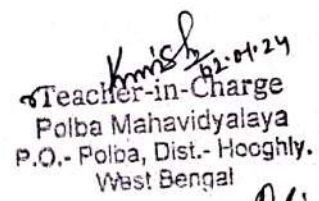 02.01.24
Teacher-in-Charge
Polba Mahavidyalaya
P.O.- Polba, Dist.- Hooghly.
West Bengal